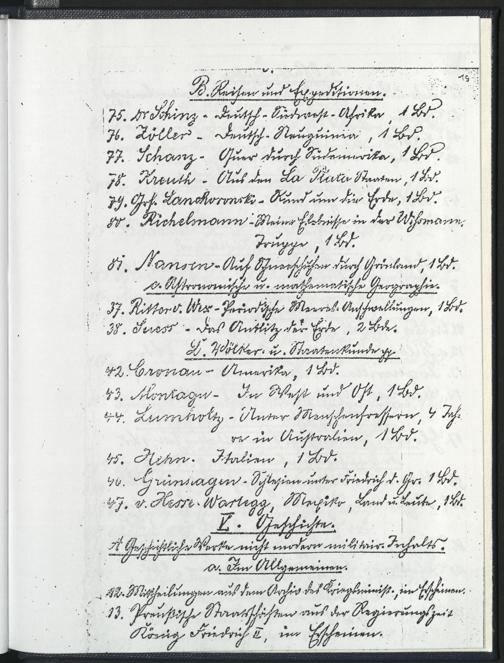 19
B. Reisen und Expeditionen.
75. Dr Schinz - Deutsch-Südwest-Afrika, 1 Bd.
76. Zöller - Deutsch-Neuguinia, 1 Bd.
77. Schanz - Quer durch Südamerika, 1 Bd.
78. Kreuth - Aus den La Plata Staaten, 1 Bd.
79. Grf. Lanckoronski - Rund um die Erde, 1 Bd.
80. Richelmann - Meine Erlebnisse in der Wissmann
Truppe, 1 Bd.
81. Nansen - Auf Schneeschuhen durch Grönland, 1 Bd.
a. Astronomische u. mathematische Geographie.
37. Ritter v. Wex - Periodische Meeres-Anschwellungen, 1 Bd.
38. Suess - Das Antlitz der Erde, 2 Bde.
b. Völker- u. Staatenkunde pp
42. Cronau - Amerika, 1 Bd.
43. Montagu - In West und Ost, 1 Bd.
44. Lumholtz - Unter Menschenfressern, 4 Jah-
re in Australien, 1 Bd.
45. Hehn. Italien, 1 Bd.
46. Grünhagen - Schlesien unter Friedrich d. Gr. 1 Bd.
47. v. Hesse-Wartegg, Mexiko, Land u. Leute, 1 Bd.
V. Geschichte.
A Geschichtliche Werke nicht modern militair. Inhalts.
a. Im Allgemeinen.
12. Mittheilungen aus dem Archiv des Kriegsminist., im Erscheinen.
13. Preußische Staatsschriften aus der Regierungszeit
König Friedrich II, im Erscheinen.